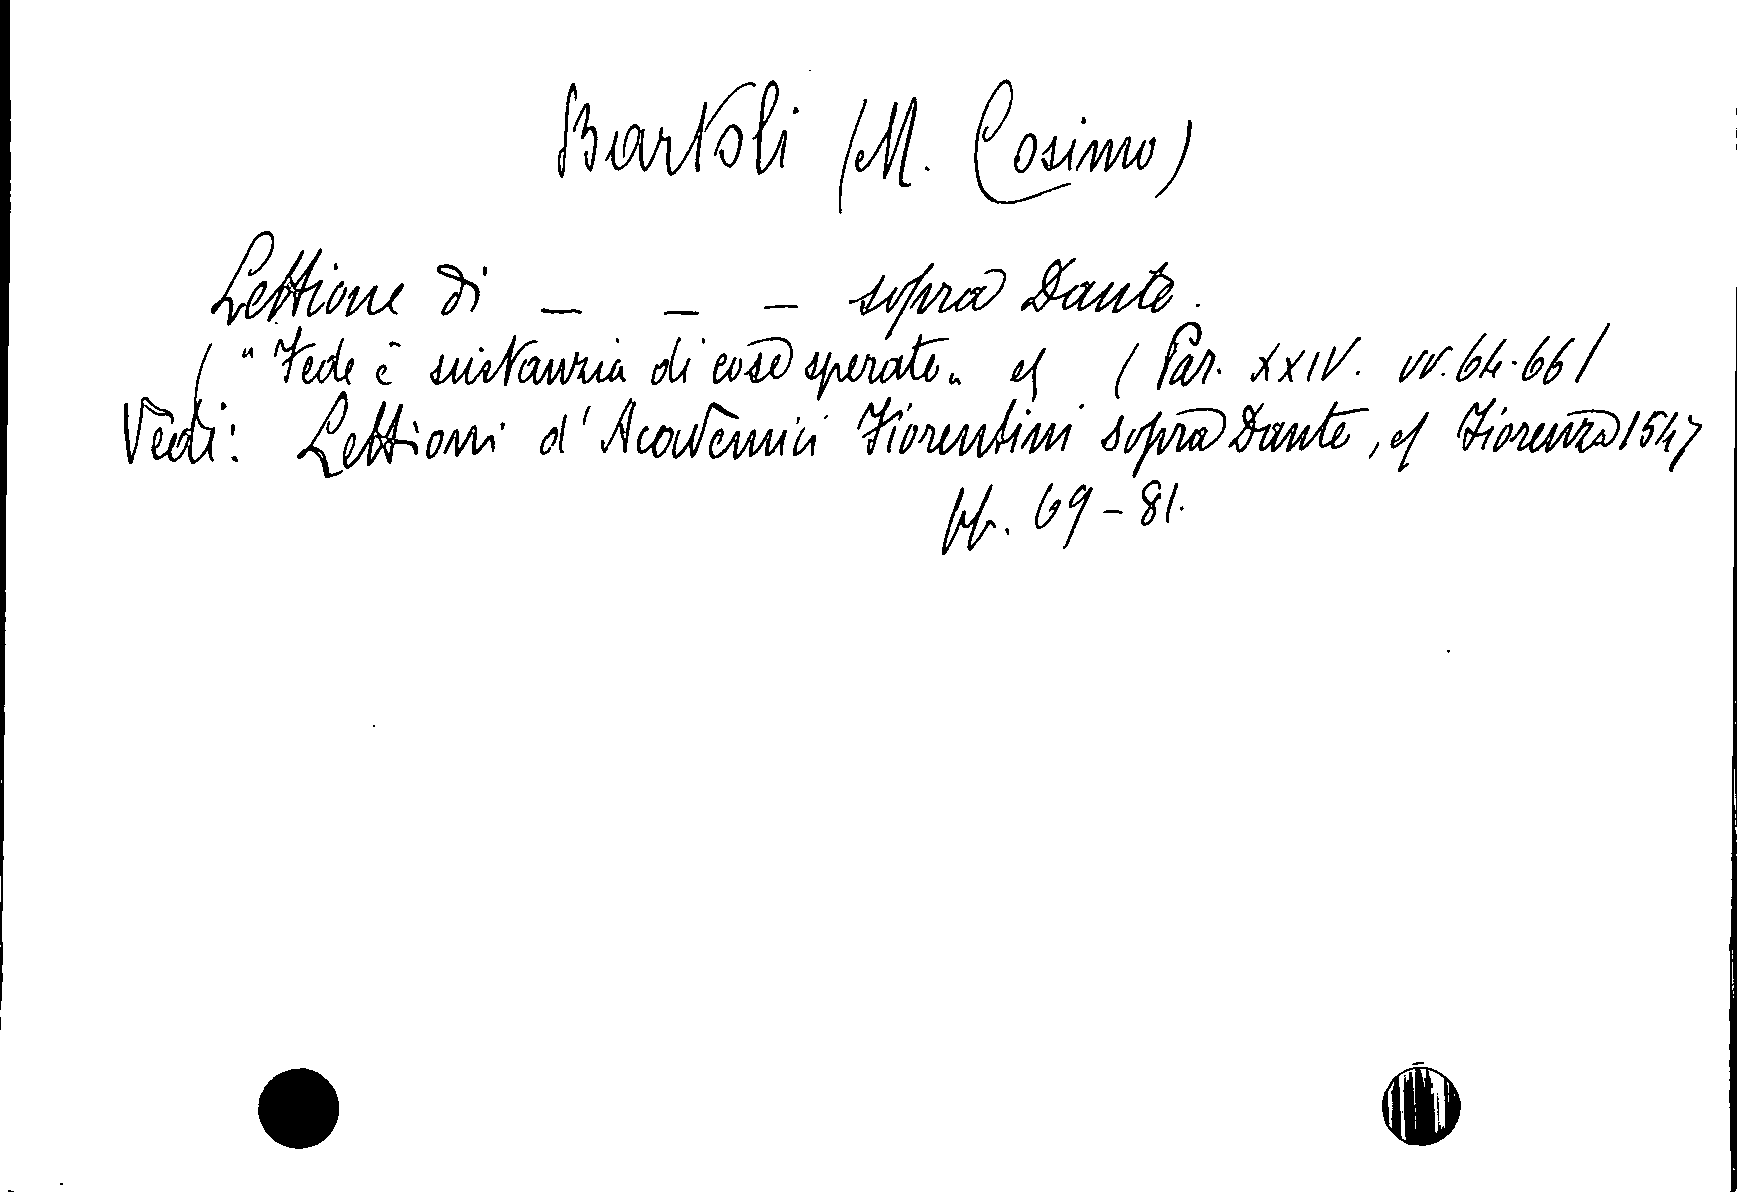 Bartoli (M. Cosimo)
Lettione di _ _ _ sopra Dante.
( "Fede è sustanzia di cose sperate„ ( Par. XXIV. vv. 64-66 )
Vedi: Lettioni d'Academici Fiorentini sopra Dante, Fiorenza 1547
pp. 69-81.